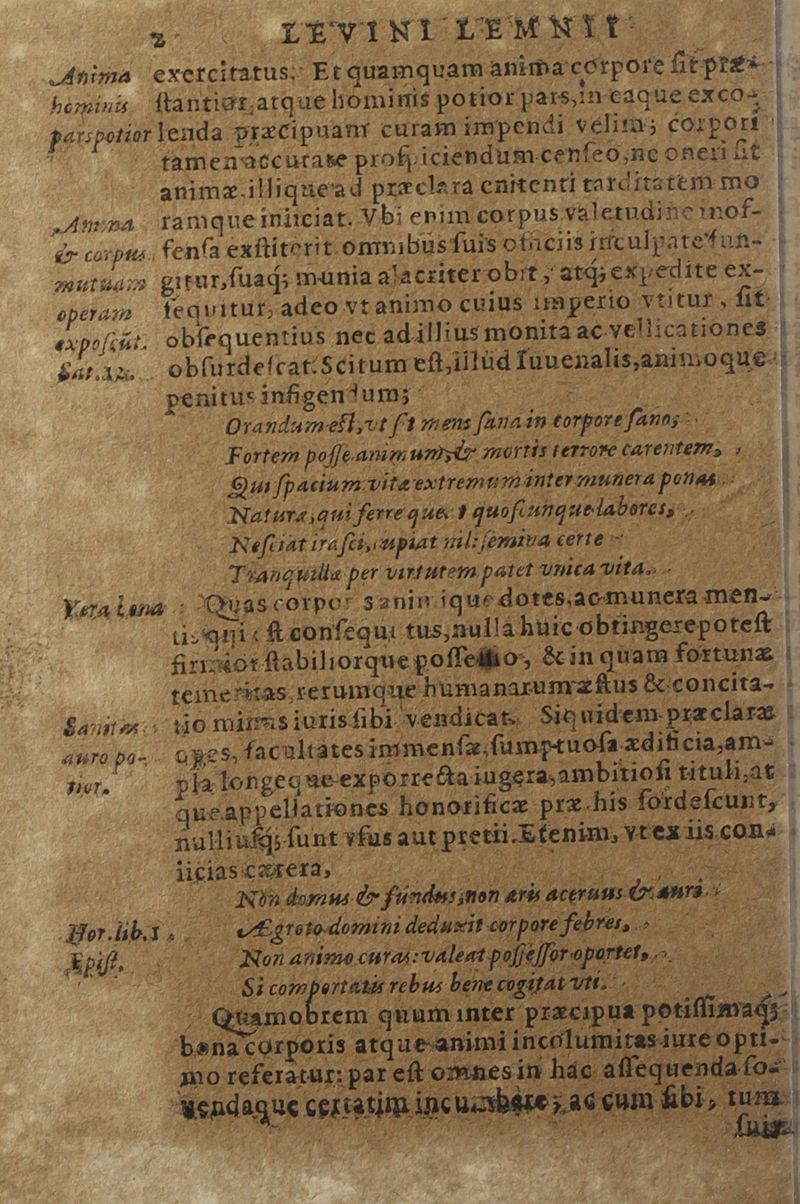 2 LEVINI LEMNII
Anima exercitatus: Et quamquam anima corpore sit præ-
hominis stantior, atque hominis potior pars, in eaque exco-
pars potior lenda præcipuam curam impendi velim; corpori
tamen accurate prospiciendum censeo, ne oneri sit
animæ. illique ad præclara enitenti tarditatem mo
Anima ramque iniiciat. Vbi enim corpus valetudine inof-
& corpus fensa exstiterit. omnibus suis officiis inculpate fun-
mutuam gitur, suaq; munia alacriter obit; atq; expedite ex-
operam sequitur, adeo vt animo cuius imperio vtitur, sit
exposcūt. obsequentius nec ad illius monita ac vellicationes
Sat. obsurdescat. Scitum est, illud Iuuenalis, animoque
penitus infigendum;
Orandum est, vt sit mens sana in corpore sano;
Fortem posce animum, & mortis terrore carentem,
Qui spacium vitæ extremum inter munera ponas
Naturæ, qui ferre queat quoscunque labores,
Nesciat irasci, cupiat nil: semita certe
Tranquilla per virtutem patet vnica vitæ.
Vera bona Quas corpor sanimique dotes, ac munera men-
tis qui est consequutus, nulla huic obtingere potest
firmior stabiliorque possessio, & in quam fortunæ
temeritas, rerumque humanarum æstus & concita-
Sanitas tio minus iuris sibi vendicat. Siquidem præclaræ
auro po- opes, facultates immensæ, sumptuosa ædificia, am-
tior. pla longeque exporrecta iugera, ambitiosi tituli, at
que appellationes honorificæ præ his sordescunt,
nulliusq; sunt vsus aut pretii. Etenim, vt ex iis con-
iicias cætera,
Non domus & fundus, non æris aceruus & auri
Hor. lib. 1 Ægroto domini deduxit corpore febres,
Epist. Non animo curas: valeat possessor oportet,
Si comportatis rebus bene cogitat vti.
Quamobrem quum inter præcipua potissimaq;
bona corporis atque animi incolumitas iure opti-
mo referatur: par est omnes in hac assequenda fo-
uendaque certatim incumbere; ac cum sibi, tum
suis